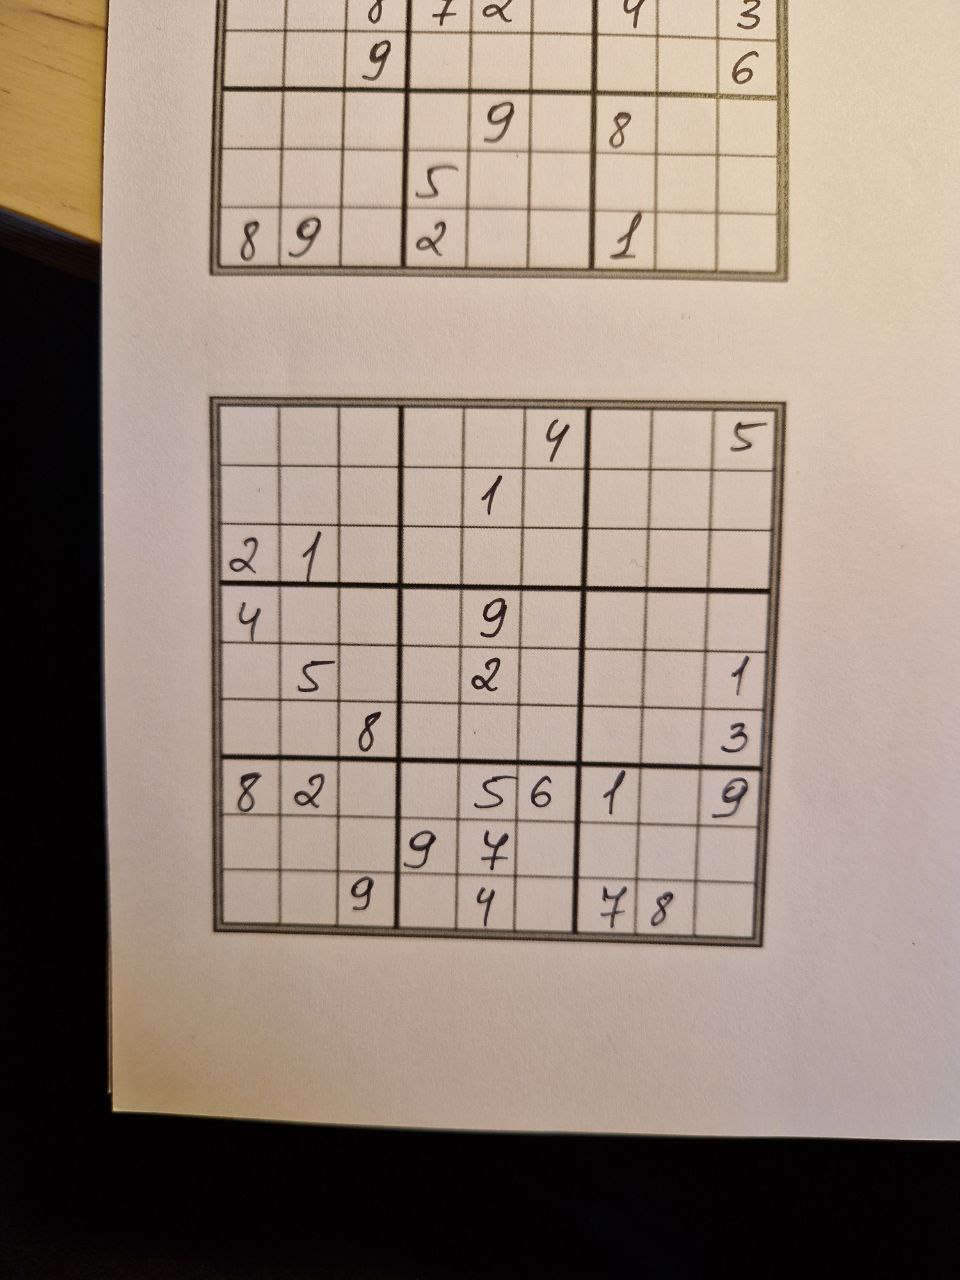 8 7 2 4 3
9 6
9 8
5
8 9 2 1
4 5
1
2 1
4 9
5 2 1
8 3
8 2 5 6 1 9
9 7
9 4 7 8